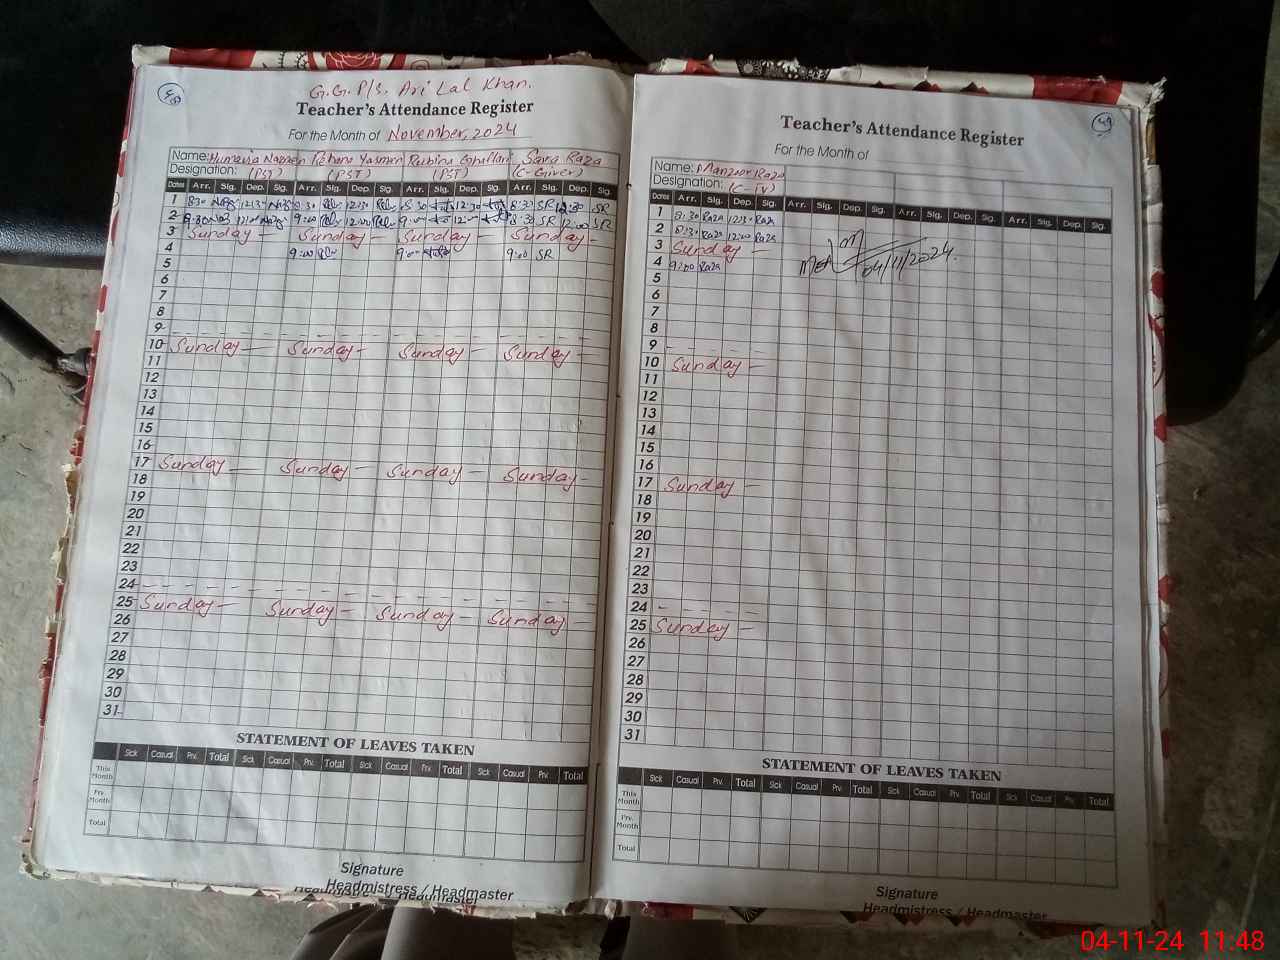 G.G.P/S. Ari Lal Khan.
Teacher's Attendance Register
For the Month of November, 2024
Name: Humaria Nazreen Rehana Yasmen Rubina Sara Raza
Designation: (PST) (PST) (PST) (C-Giver)
Dates Arr. Sig. Dep. Sig. Arr. Sig. Dep. Sig. Arr. Sig. Dep. Sig. Arr. Sig. Dep. Sig.
1 8:30 12:30 8:30 12:30 8:30 12:30 8:30 SR 12:30 SR
2 8:30 12:00 9:00 12:00 9:00 12:00 8:30 SR 12:00 SR
3 Sunday - Sunday - Sunday - Sunday -
4 9:00 9:00 9:00 SR
5
6
7
8
9
10 Sunday - Sunday - Sunday - Sunday -
11
12
13
14
15
16
17 Sunday - Sunday - Sunday - Sunday -
18
19
20
21
22
23
24
25 Sunday - Sunday - Sunday - Sunday -
26
27
28
29
30
31
STATEMENT OF LEAVES TAKEN
Sick Casual Prv. Total Sick Casual Prv. Total Sick Casual Prv. Total Sick Casual Prv. Total
This Month
Prv. Month
Total
Signature
Headmistress / Headmaster
49
Teacher's Attendance Register
For the Month of
Name: Manzoor Raza
Designation: (C-IV)
Dates Arr. Sig. Dep. Sig. Arr. Sig. Dep. Sig. Arr. Sig. Dep. Sig. Arr. Sig. Dep. Sig.
1 8:30 Raza 12:30 Raza
2 8:30 Raza 12:00 Raza
3 Sunday -
4 9:00 Raza
MEA 04/11/2024.
5
6
7
8
9
10 Sunday -
11
12
13
14
15
16
17 Sunday -
18
19
20
21
22
23
24
25 Sunday -
26
27
28
29
30
31
STATEMENT OF LEAVES TAKEN
Sick Casual Prv. Total Sick Casual Prv. Total Sick Casual Prv. Total Sick Casual Prv. Total
This Month
Prv. Month
Total
Signature
Headmistress / Headmaster
04-11-24 11:48